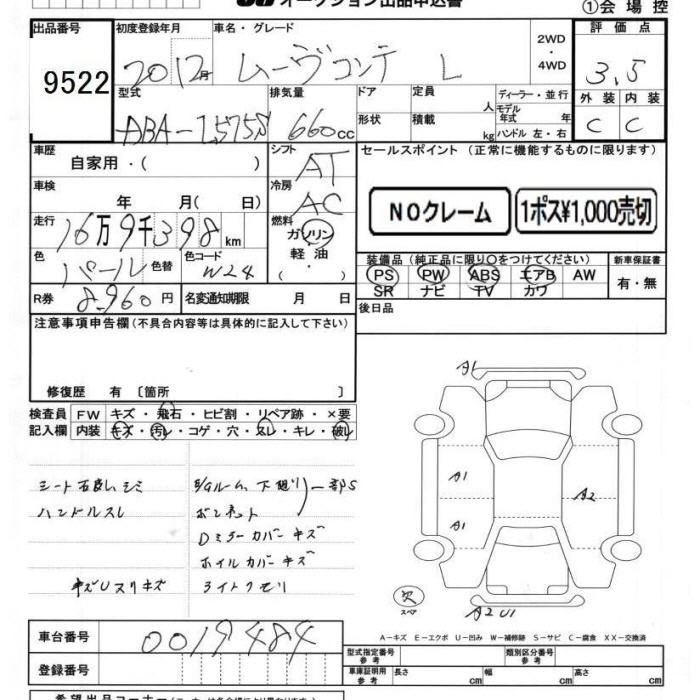 ①会場控
オークション出品申込書
出品番号
9522
初度登録年月
2012月
車名・グレード
ムーヴコンテ L
2WD
・
4WD
評価点
3.5
外装 内装
C C
型式
ABA-L575S
排気量
660cc
ドア
形状
定員
人
積載
kg
ディーラー・並行
モデル年式 年
ハンドル 左・右
車歴
自家用・( )
シフト
AT
冷房
AC
車検
年 月( 日)
走行
16万9千398km
燃料
ガソリン
軽・油
・
色
パール
色替
色コード
W24
R券
8960円
名変通知期限 月 日
セールスポイント (正常に機能するものに限ります)
NOクレーム
1ポス¥1,000売切
装備品 (純正品に限り○をつけてください)
PS PW ABS エアB AW
SR ナビ TV カワ
新車保証書
有・無
後日品
注意事項申告欄(不具合内容等は具体的に記入して下さい)
修復歴 有 〔箇所 〕
検査員記入欄
FW キズ・飛石・ヒビ割・リペア跡・×要
内装 キズ・汚レ・コゲ・穴・スレ・キレ・破レ
シート
シミ
ハンドルスレ
下廻り
一部S
ボンネット
Dミラーカバーキズ
ホイルカバーキズ
キズUスリキズ
ライトクモリ
A1
A1
A1
A2
A2 U1
欠
スペア
A-キズ E-エクボ U-凹み W-補修跡 S-サビ C-腐食 XX-交換済
車台番号
0019484
登録番号
型式指定番号
参考
類別区分番号
参考
車庫証明用
参考
長さ
cm
幅
cm
高さ
cm
希望出品コーナー